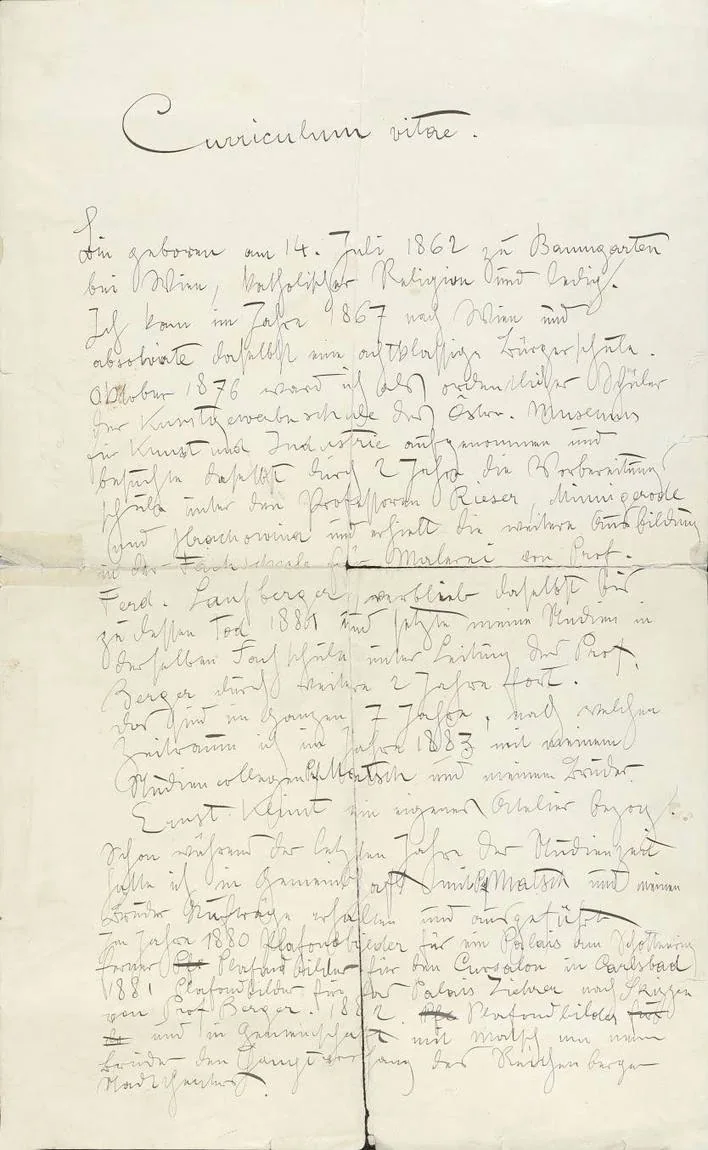 Curriculum vitae.
Bin geboren am 14. Juli 1862 zu Baumgarten
bei Wien, katholischer Religion und ledig.
Ich kam im Jahre 1867 nach Wien und
absolvirte daselbst eine achtklassige Bürgerschule.
Oktober 1876 ward ich als ordentlicher Schüler
der Kunstgewerbeschule des Östrr. Museums
für Kunst und Industrie aufgenommen und
besuchte daselbst durch 2 Jahre die Vorbereitungs
schule unter den Professoren Rieser, Minnigerode
und Hrachowina und erhielt die weitere Ausbildung
in der Fachschule für Malerei von Prof.
Ferd. Laufberger, verblieb daselbst bis
zu dessen Tod 1881 und setzte meine Studien in
derselben Fachschule unter Leitung des Prof.
Berger durch weitere 2 Jahre fort.
das sind im Ganzen 7 Jahre, nach welchen
Zeitraum ich im Jahre 1883 mit meinem
Studiencollegen Matsch und meinem Bruder
Ernst Klimt ein eigenes Atelier bezog.
Schon während der letzten Jahre der Studienzeit
hatte ich in Gemeinschaft mit Matsch und meinen
Bruder Aufträge erhalten und ausgeführt
Im Jahre 1880 Plafondbilder für ein Palais am Schottenring
ferner Plafondbilder für den Cursalon in Carlsbad
1881 Plafondbilder für das Palais Ziehrer nach Skizzen
von Prof Berger. 1882. Plafondbilder
und in Gemeinschaft mit Matsch und
Bruder den Hauptvorhang des Reichenberger
Stadttheaters.